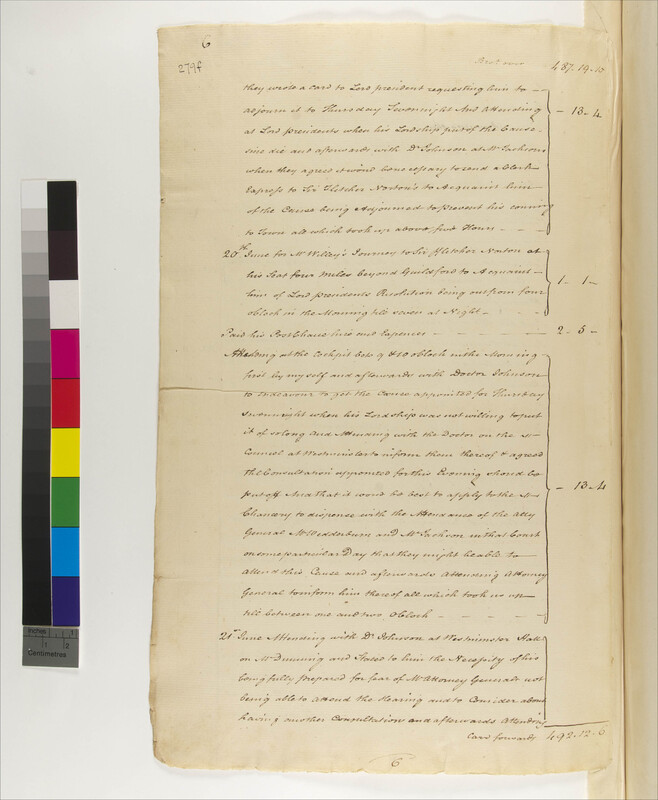 6
279f
Brot over 487.19.10
they wrote a card to Lord president requesting him to
adjourn it to Thursday Sevennight And Attending
at Lord presidents when his Lordship put of the Cause
sine die and afterwards with Dr. Johnson at Mr Jacksons
when they agreed it woud be necessary to send a Clerk
Express to Sir Fletcher Norton's to Acquaint him
of the Cause being Adjourned to prevent his coming
to Town all which took up above four Hours - - -
- 13 - 4
20th June for Mr Willey's Journey to Sir Fletcher Norton at
his Seat four Miles beyond Guildford to Acquaint
him of Lord presidents Resolution being out from four
oClock in the Morning till seven at Night - - -
1 - 1 -
Paid his Post Chaise hire and Expences - - - - 2 - 5 -
Attending at the Cockpit betw 9 & 10 oClock in the Morning
first by myself and afterwards with Doctor Johnson
to endeavour to get the Cause appointed for Thursday
Sevennight when his Lordship was not willing to put
it of so long And Attending with the Doctor on the
Council at Westminster to inform them thereof & agreed
the Consultation appointed for this Evening should be
put off And that it woud be best to apply to the
Chancery to dispense with the Attendance of the Atty
General Mr Wedderburn and Mr Jackson in that Court
on some particular Day that they might be able to
attend this Cause and afterwards Attending Attorney
General to inform him thereof all which took us up
till between one and two oClock - - - -
- 13 - 4
21st June Attending with Dr Johnson at Westminster Hall
on Mr Dunning and Stated to him the Necessity of his
being fully prepared for fear of Mr Attorney Generals not
being able to attend the Hearing and to Consider about
having another Consultation and afterwards Attending
Card forwards 492.12.6
6
inches 1 2
Centimetres